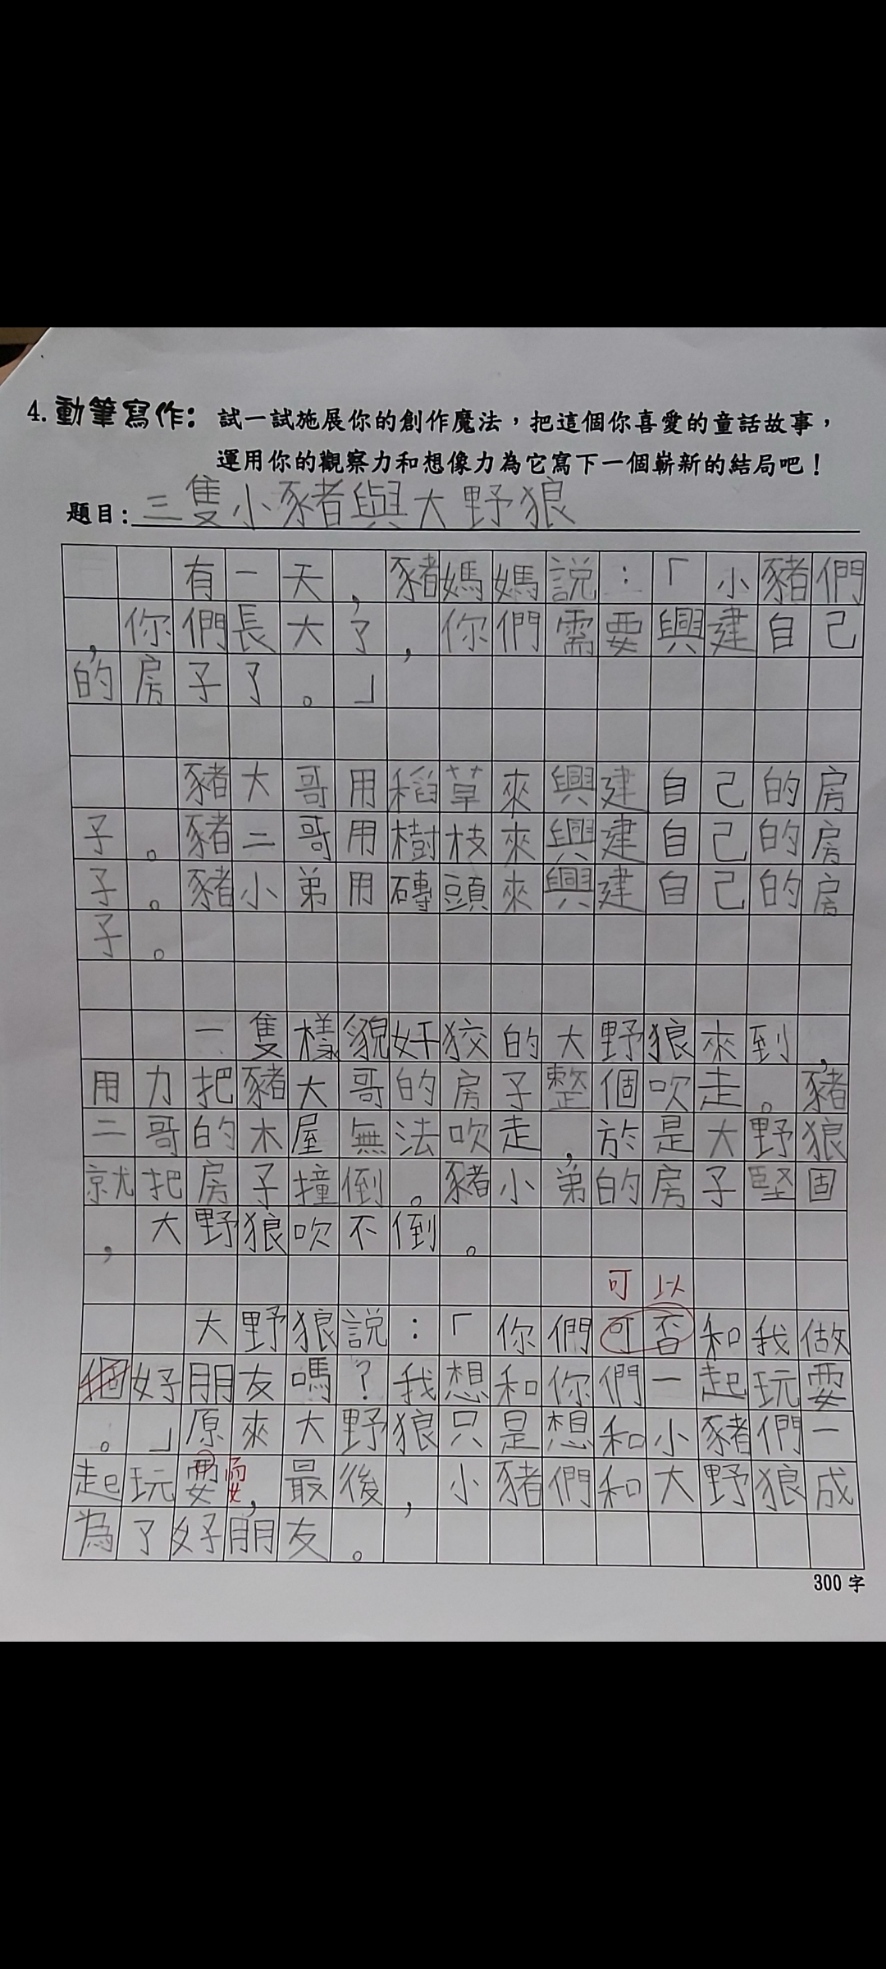 4. 動筆寫作：試一試施展你的創作魔法，把這個你喜愛的童話故事，
運用你的觀察力和想像力為它寫下一個嶄新的結局吧！
題目：三隻小豬與大野狼
有一天，豬媽媽說：「小豬們
，你們長大了，你們需要興建自己
的房子了。」
豬大哥用稻草來興建自己的房
子。豬二哥用樹枝來興建自己的房
子。豬小弟用磚頭來興建自己的房
子。
一隻樣貌奸狡的大野狼來到，
用力把豬大哥的房子整個吹走。豬
二哥的木屋無法吹走，於是大野狼
就把房子撞倒。豬小弟的房子堅固
，大野狼吹不倒。
可以
大野狼說：「你們可否和我做
個好朋友嗎？我想和你們一起玩耍
。」原來大野狼只是想和小豬們一
起玩耍耍，最後，小豬們和大野狼成
為了好朋友。
300字